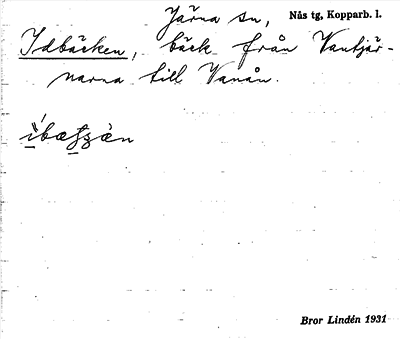 Järna sn, Nås tg, Kopparb. l.
Idbäcken, bäck från Vantjär-
narna till Vanån.
Bror Lindén 1931